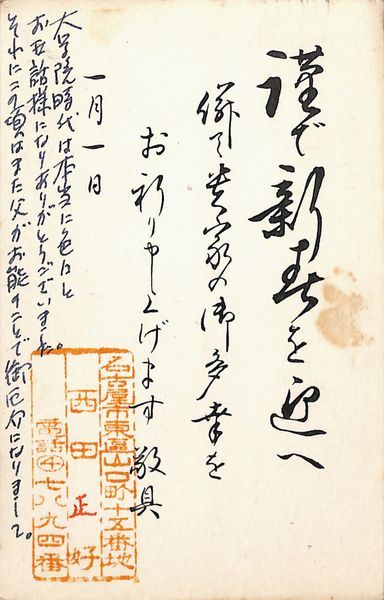 謹で新春を迎へ
併て貴家の御多幸を
お祈り申し上げます 敬具
一月一日
大学院時代は本当に色々と
お世話様になりありがとうございました。
それにこの頃はまた父がお能のことで御厄介になりまして。
名古屋市東区山口町十五番地
西田 正好
電話㊥七八九四番